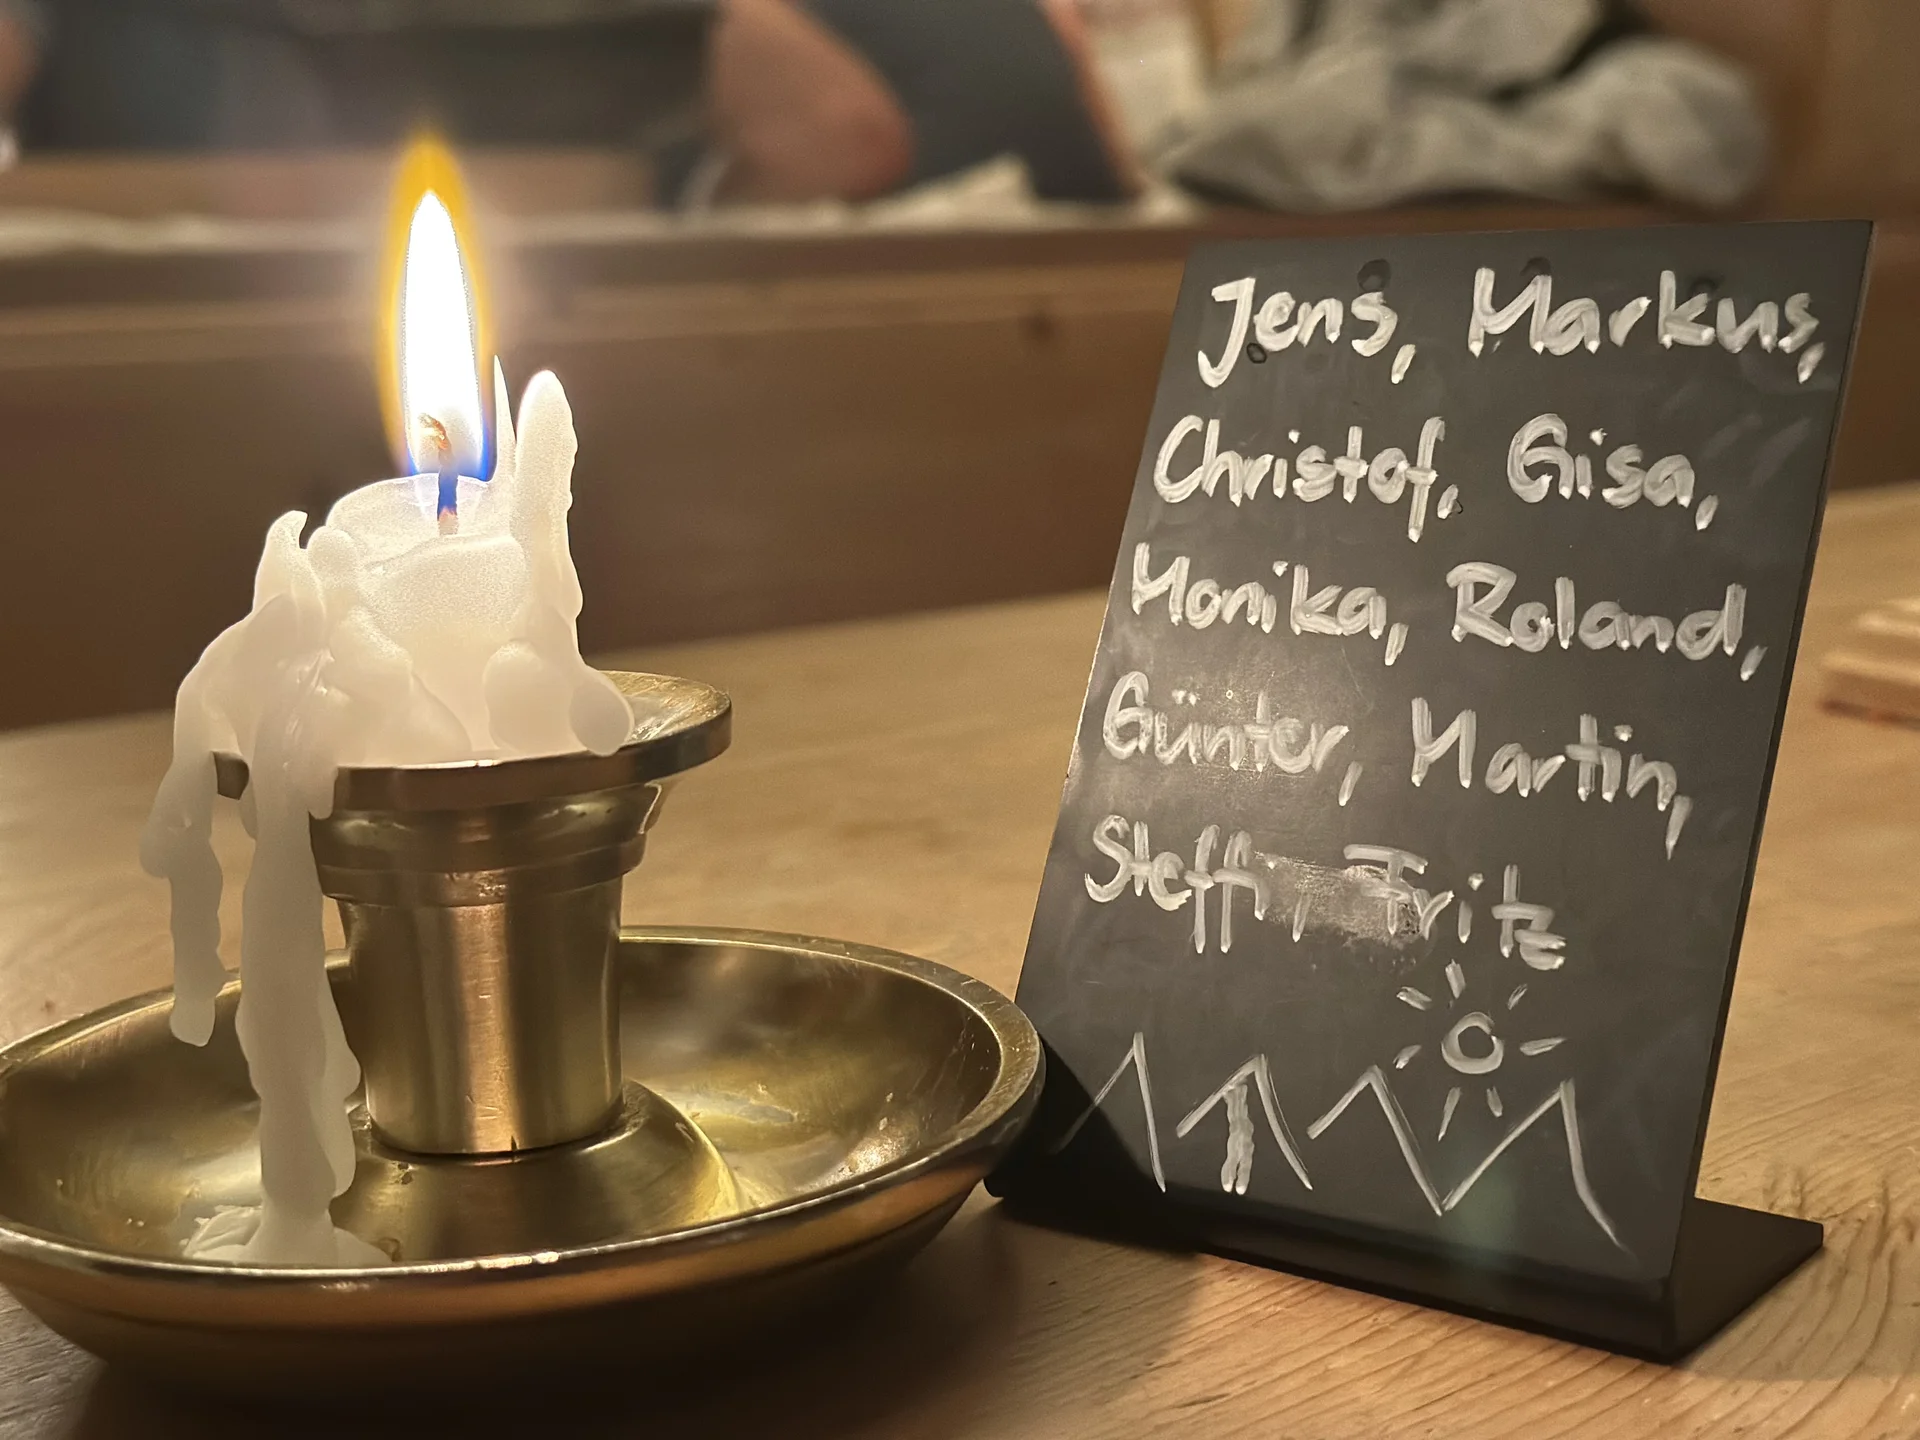 Jens, Markus,
Christof, Gisa,
Monika, Roland,
Günter, Martin,
Steffi, Fritz